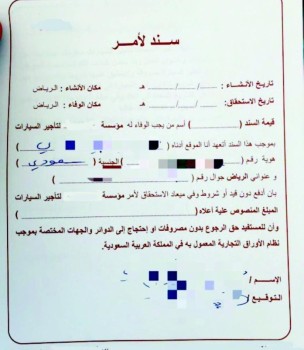 سند لأمر
تاريخ الأنشاء : ___/___/___ هـ مكان الأنشاء : الرياض
تاريخ الاستحقاق: ___/___/___ هـ مكان الوفاء : الرياض
قيمة السند ( ) أسم من يجب الوفاء له مؤسسة لتأجير السيارات
بموجب هذا السند أتعهد أنا الموقع أدناه ( )
هوية رقم ( ) الجنسية ( سعودي )
و عنواني الرياض جوال رقم ( )
بان أدفع بدون قيد أو شروط وفي ميعاد الاستحقاق لأمر مؤسسة لتأجير السيارات
المبلغ المنصوص علية أعلاه ( )
وأن للمستفيد حق الرجوع بدون مصروفات او إحتجاج إلى الدوائر والجهات المختصة بموجب
نظام الأوراق التجارية المعمول به في المملكة العربية السعودية.
الإســم /
التـوقـيـع /